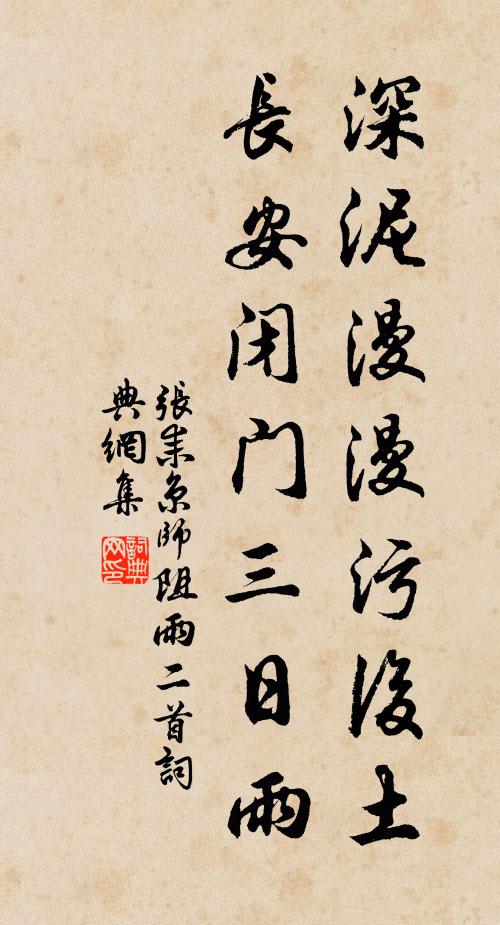 深泥漫漫污後土
長安閉門三日雨
張耒京師阻雨二首詞
典網集
詞典網印